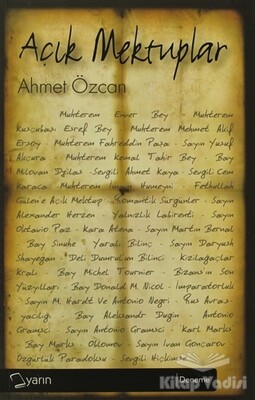 Açık Mektuplar
Ahmet Özcan
Muhterem Enver Bey - Muhterem
Kuşçubaşı Eşref Bey - Muhterem Mehmet Akif
Ersoy - Muhterem Fahreddin Paşa - Sayın Yusuf
Akçura - Muhterem Kemal Tahir Bey - Bay
Milovan Djilas - Sevgili Ahmet Kaya - Sevgili Cem
Karaca - Muhterem İmam Humeyni - Fethullah
Gülen'e Açık Mektup - Romantik Sürgünler - Sayın
Alexander Herzen - Yalnızlık Labirenti - Sayın
Octavio Paz - Kara Atena - Sayın Martin Bernal
- Bay Sinuhe - Yaralı Bilinç - Sayın Daryush
Shayegan - Deli Dumrulun Bilinci - Kızılağaçlar
Kralı - Bay Michel Tournier - Bizans'ın Son
Yüzyılları - Bay Donald M. Nicol - İmparatorluk
- Sayın M. Hardt Ve Antonio Negri - Rus Avras-
yacılığı - Bay Aleksandr Dugin - Antonio
Gramsci - Sayın Antonio Gramsci - Karl Marks
- Bay Marks - Oblomov - Sayın Ivan Gonçarov -
Özgürlük Paradoksu - Sevgili Hiçkimse
yarın
Deneme
Kitap Vadisi